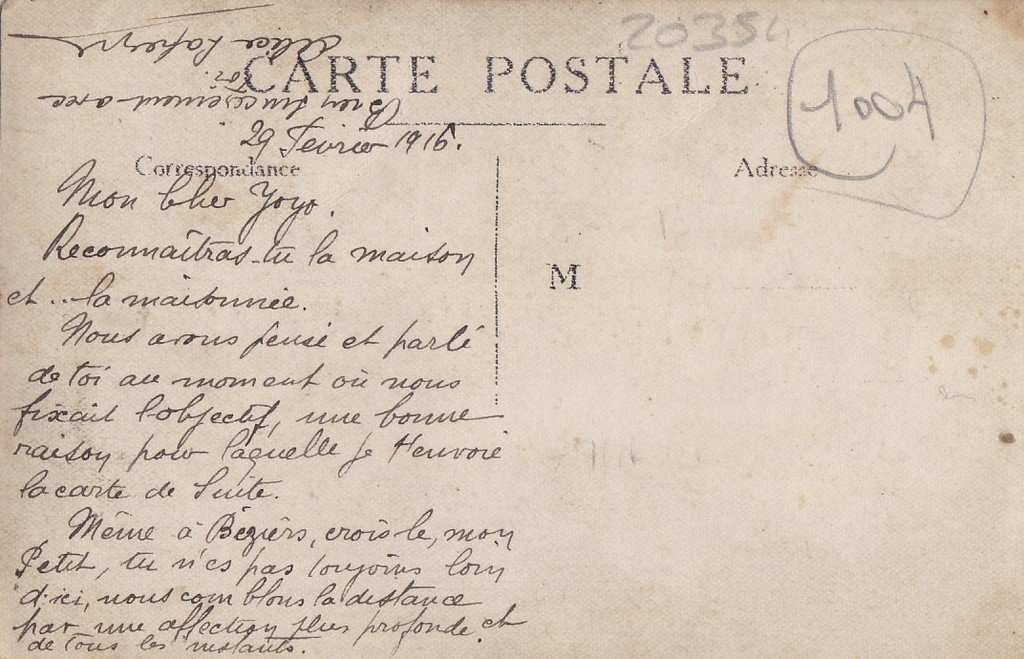 20354
CARTE POSTALE
1004
29 Février 1916.
Correspondance
Adresse
M
Mon Cher Yoyo.
Reconnaîtras-tu la maison
et... la maisonnée.
Nous avons pensé et parlé
de toi au moment où nous
fixait l'objectif, une bonne
raison pour laquelle je t'envoie
la carte de suite.
Même à Béziers, crois le, mon
Petit, tu n'es pas toujours loin
d'ici, nous comblons la distance
par une affection plus profonde et
de tous les instants.
Bien sincèrement avec
toi.
Alice